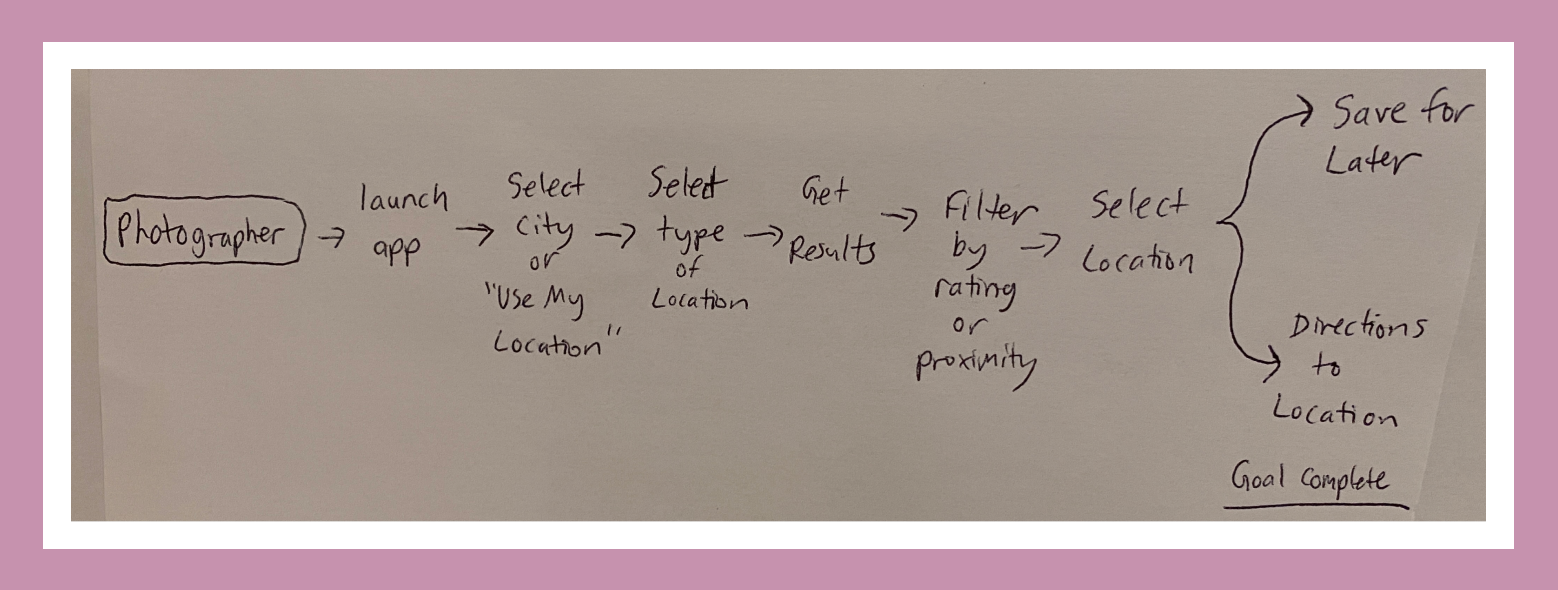 Photographer
launch
app
Select
City
or
"Use My
Location"
Select
type
of
Location
Get
Results
Filter
by
rating
or
proximity
Select
Location
Save for
Later
Directions
to
Location
Goal Complete